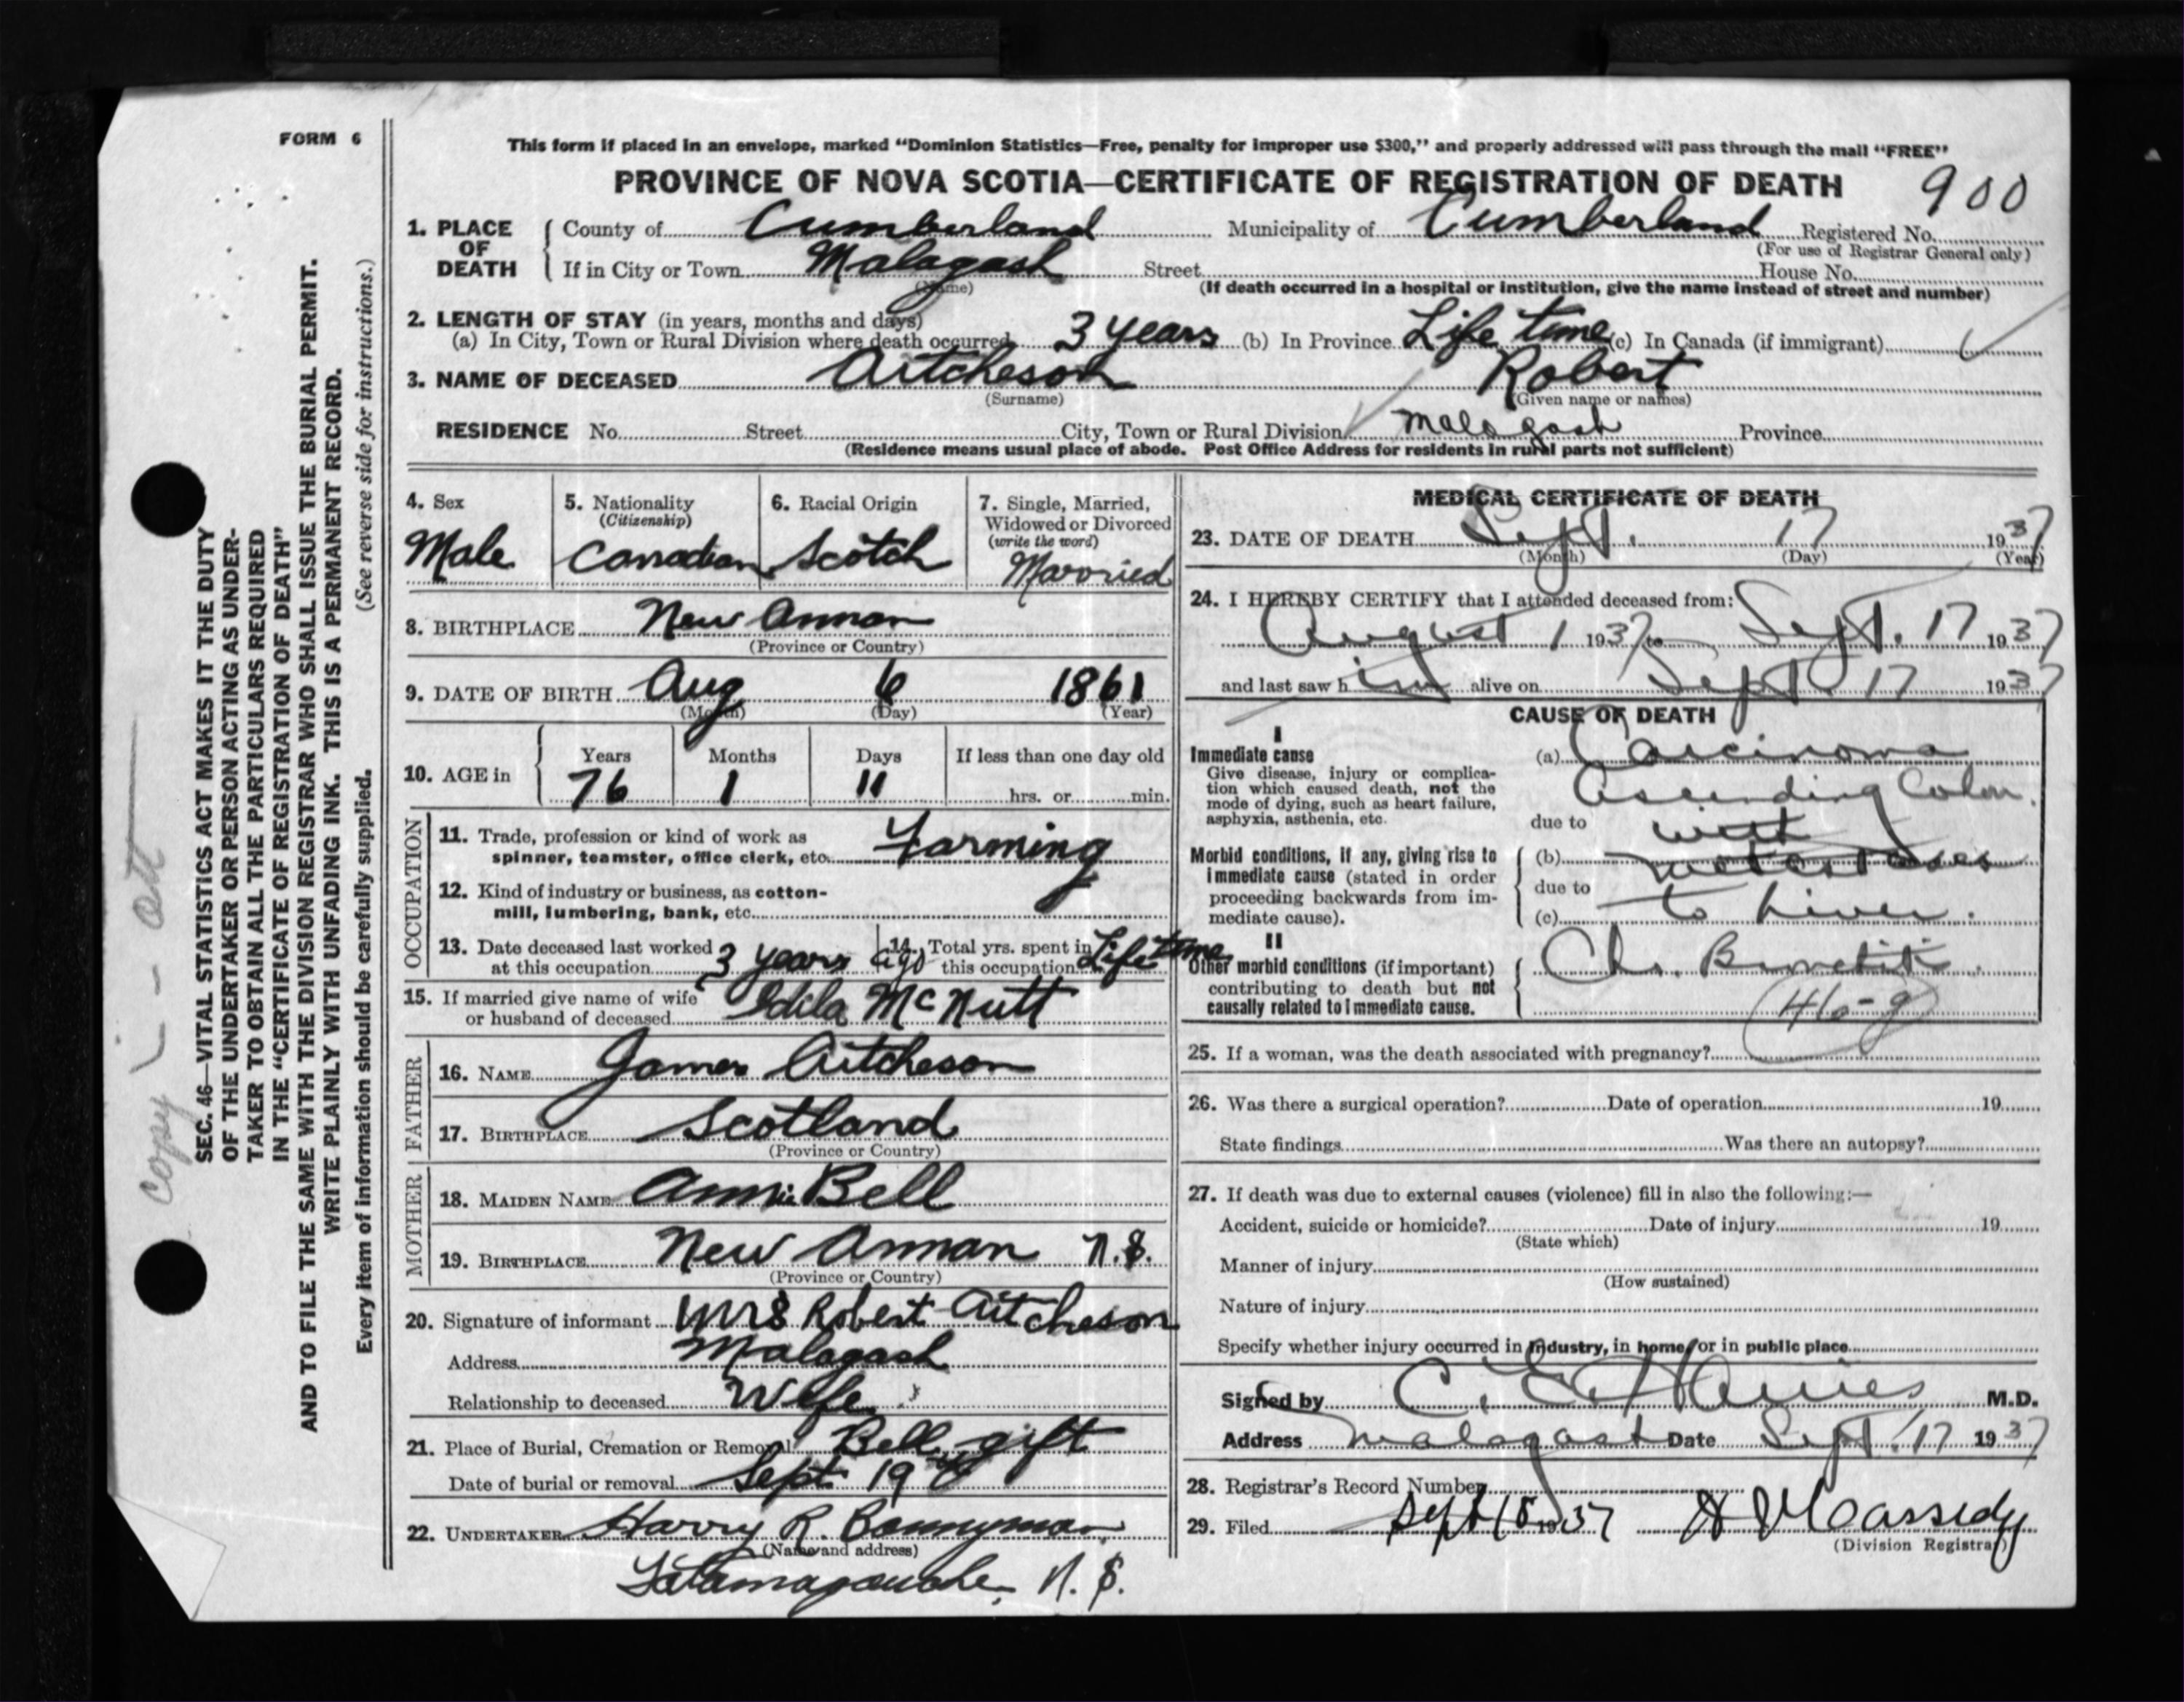 FORM 6
This form if placed in an envelope, marked "Dominion Statistics—Free, penalty for improper use $300," and properly addressed will pass through the mail "FREE"
PROVINCE OF NOVA SCOTIA—CERTIFICATE OF REGISTRATION OF DEATH 900
1. PLACE OF DEATH County of Cumberland Municipality of Cumberland Registered No.
(For use of Registrar General only)
If in City or Town Malagash Street House No.
(Name) (If death occurred in a hospital or institution, give the name instead of street and number)
2. LENGTH OF STAY (in years, months and days)
(a) In City, Town or Rural Division where death occurred 3 years (b) In Province Life time (c) In Canada (if immigrant)
3. NAME OF DECEASED Aitcheson Robert
(Surname) (Given name or names)
RESIDENCE No. Street City, Town or Rural Division Malagash Province
(Residence means usual place of abode. Post Office Address for residents in rural parts not sufficient)
4. Sex Male
5. Nationality (Citizenship) Canadian
6. Racial Origin Scotch
7. Single, Married, Widowed or Divorced (write the word) Married
8. BIRTHPLACE New Annan
(Province or Country)
9. DATE OF BIRTH Aug 6 1861
(Month) (Day) (Year)
10. AGE in Years 76 Months 1 Days 11 If less than one day old
hrs. or min.
OCCUPATION
11. Trade, profession or kind of work as
spinner, teamster, office clerk, etc. Farming
12. Kind of industry or business, as cotton-
mill, lumbering, bank, etc.
13. Date deceased last worked
at this occupation 3 years ago
14. Total yrs. spent in
this occupation Life time
15. If married give name of wife
or husband of deceased McNutt
FATHER
16. NAME James Aitcheson
17. BIRTHPLACE Scotland
(Province or Country)
MOTHER
18. MAIDEN NAME Annie Bell
19. BIRTHPLACE New Annan N.S.
(Province or Country)
20. Signature of informant Mrs Robert Aitcheson
Address Malagash
Relationship to deceased Wife
21. Place of Burial, Cremation or Removal Bell gift
Date of burial or removal Sept 19
22. UNDERTAKER Harry R. Bonnyman
(Name and address)
Tatamagouche, N.S.
MEDICAL CERTIFICATE OF DEATH
23. DATE OF DEATH Sept. 17 1937
(Month) (Day) (Year)
24. I HEREBY CERTIFY that I attended deceased from:
August 1 1937 to Sept. 17 1937
and last saw him alive on Sept. 17 1937
CAUSE OF DEATH
I
Immediate cause
Give disease, injury or complica-
tion which caused death, not the
mode of dying, such as heart failure,
asphyxia, asthenia, etc.
(a) Carcinoma
Ascending Colon.
due to with
Morbid conditions, if any, giving rise to
immediate cause (stated in order
proceeding backwards from im-
mediate cause).
(b) metastases
due to
(c) to liver.
II
Other morbid conditions (if important)
contributing to death but not
causally related to immediate cause.
46-g
25. If a woman, was the death associated with pregnancy?
26. Was there a surgical operation? Date of operation 19
State findings Was there an autopsy?
27. If death was due to external causes (violence) fill in also the following:—
Accident, suicide or homicide? Date of injury 19
(State which)
Manner of injury
(How sustained)
Nature of injury
Specify whether injury occurred in industry, in home, or in public place
Signed by M.D.
Address Malagash Date Sept. 17 1937
28. Registrar's Record Number
29. Filed Sept 18 1937
(Division Registrar)
SEC. 46—VITAL STATISTICS ACT MAKES IT THE DUTY
OF THE UNDERTAKER OR PERSON ACTING AS UNDER-
TAKER TO OBTAIN ALL THE PARTICULARS REQUIRED
IN THE "CERTIFICATE OF REGISTRATION OF DEATH"
AND TO FILE THE SAME WITH THE DIVISION REGISTRAR WHO SHALL ISSUE THE BURIAL PERMIT.
WRITE PLAINLY WITH UNFADING INK. THIS IS A PERMANENT RECORD.
Every item of information should be carefully supplied. (See reverse side for instructions.)
copy